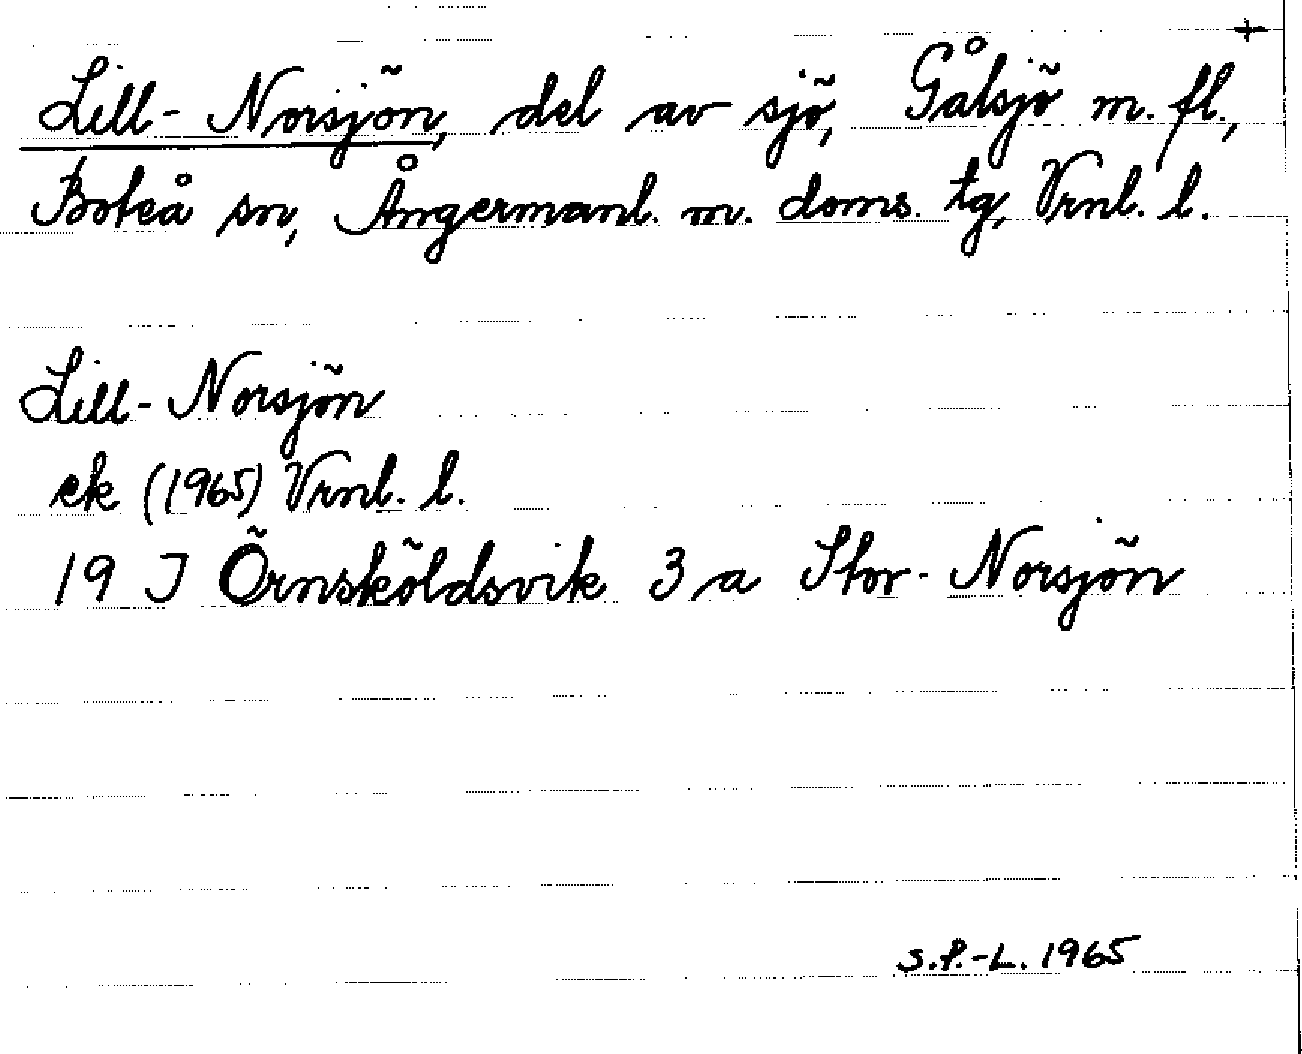 +
Lill-Norsjön, del av sjö, Gålsjö m. fl.,
Boteå sn, Ångermanl. m. doms. tg, Vrnl. l.
Lill-Norsjön
ek (1965) Vrnl. l.
19 J Örnsköldsvik 3 a Stor-Norsjön
S.P.-L. 1965